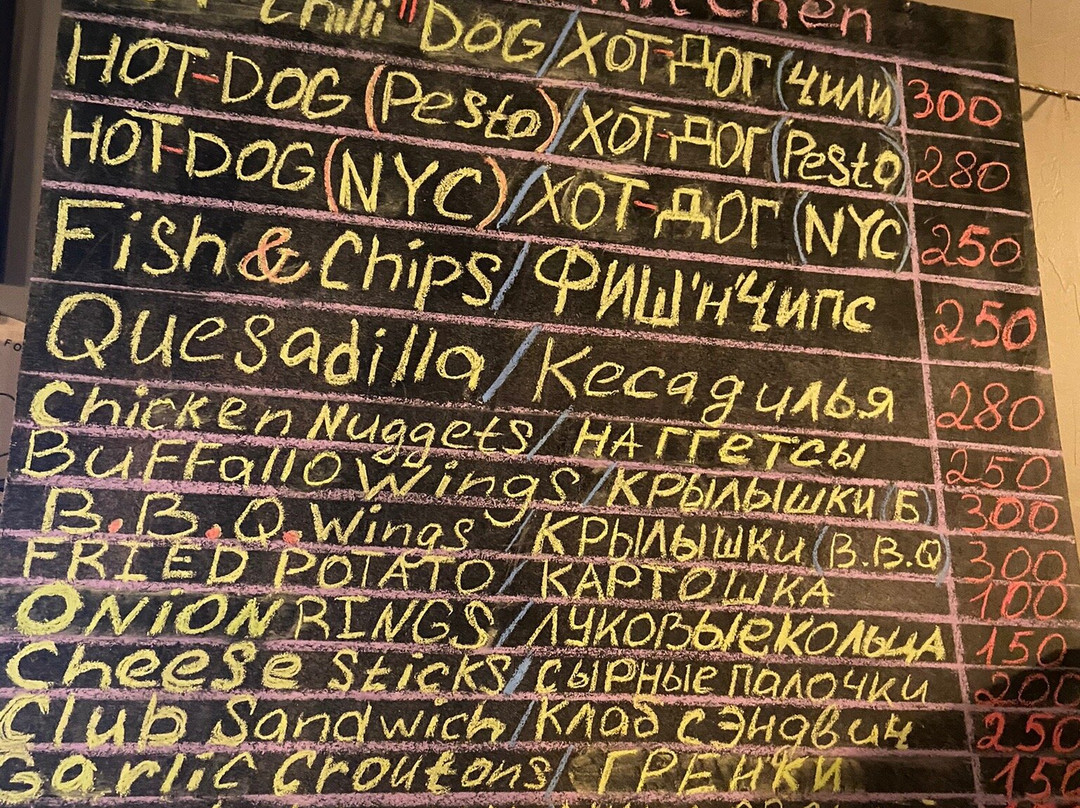 Kitchen
"Chilli" DOG / ХОТ-ДОГ (ЧИЛИ) 300
HOT-DOG (Pesto) / ХОТ-ДОГ (Pesto) 280
HOT-DOG (NYC) / ХОТ-ДОГ (NYC) 250
Fish & Chips / ФИШ'Н'ЧИПС 250
Quesadilla / Кесадилья 280
Chicken Nuggets / НАГГЕТСЫ 250
Buffallo Wings / КРЫЛЫШКИ (Б) 300
B.B.Q. Wings / КРЫЛЫШКИ (B.B.Q) 300
FRIED POTATO / КАРТОШКА 100
ONiON RINGS / ЛУКОВЫЕ КОЛЬЦА 150
Cheese Sticks / СЫРНЫЕ ПАЛОЧКИ 200
Club Sandwich / Клаб Сэндвич 250
Garlic Croutons / ГРЕНКИ 150